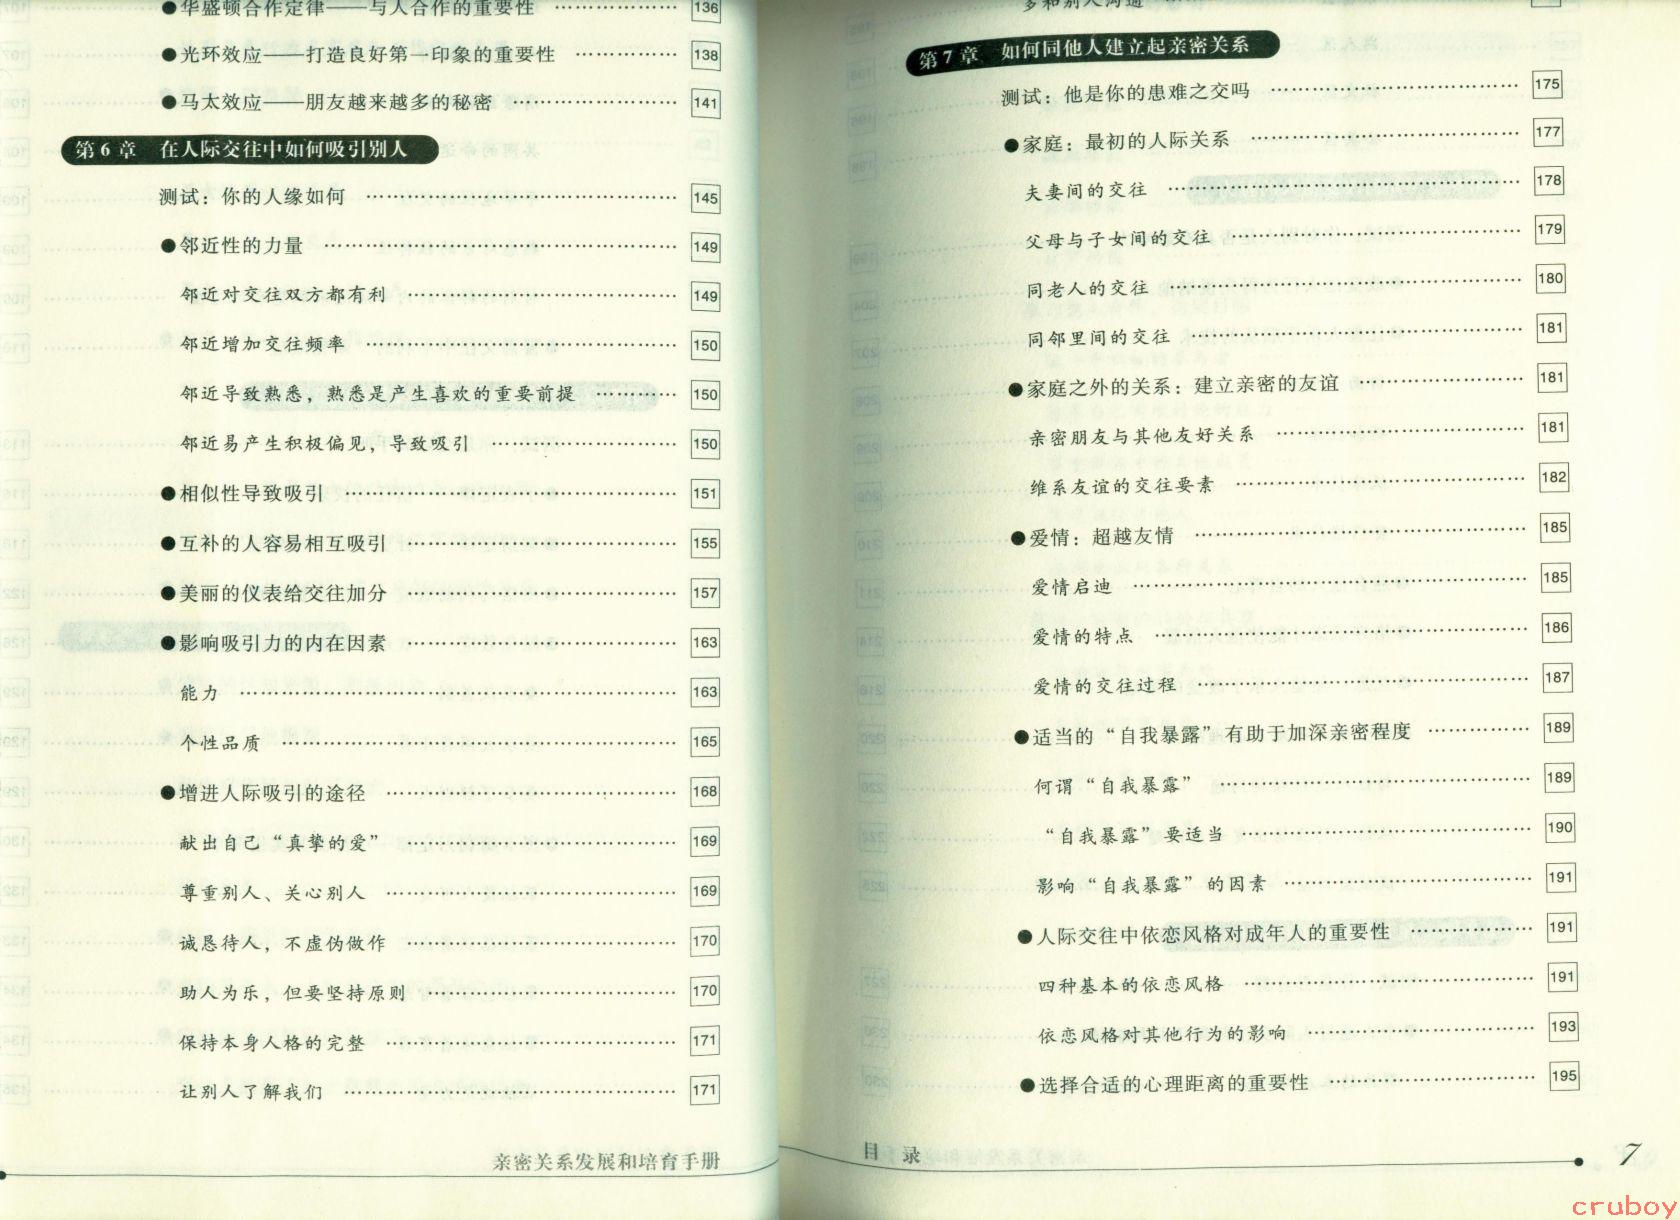 ●华盛顿合作定律——与人合作的重要性 ………… 136
●光环效应——打造良好第一印象的重要性 ………… 138
●马太效应——朋友越来越多的秘密 ………… 141
第6章 在人际交往中如何吸引别人
测试：你的人缘如何 ………… 145
●邻近性的力量 ………… 149
邻近对交往双方都有利 ………… 149
邻近增加交往频率 ………… 150
邻近导致熟悉，熟悉是产生喜欢的重要前提 ………… 150
邻近易产生积极偏见，导致吸引 ………… 150
●相似性导致吸引 ………… 151
●互补的人容易相互吸引 ………… 155
●美丽的仪表给交往加分 ………… 157
●影响吸引力的内在因素 ………… 163
能力 ………… 163
个性品质 ………… 165
●增进人际吸引的途径 ………… 168
献出自己“真挚的爱” ………… 169
尊重别人、关心别人 ………… 169
诚恳待人，不虚伪做作 ………… 170
助人为乐，但要坚持原则 ………… 170
保持本身人格的完整 ………… 171
让别人了解我们 ………… 171
亲密关系发展和培育手册
多和别人沟通
第7章 如何同他人建立起亲密关系
测试：他是你的患难之交吗 ………… 175
●家庭：最初的人际关系 ………… 177
夫妻间的交往 ………… 178
父母与子女间的交往 ………… 179
同老人的交往 ………… 180
同邻里间的交往 ………… 181
●家庭之外的关系：建立亲密的友谊 ………… 181
亲密朋友与其他友好关系 ………… 181
维系友谊的交往要素 ………… 182
●爱情：超越友情 ………… 185
爱情启迪 ………… 185
爱情的特点 ………… 186
爱情的交往过程 ………… 187
●适当的“自我暴露”有助于加深亲密程度 ………… 189
何谓“自我暴露” ………… 189
“自我暴露”要适当 ………… 190
影响“自我暴露”的因素 ………… 191
●人际交往中依恋风格对成年人的重要性 ………… 191
四种基本的依恋风格 ………… 191
依恋风格对其他行为的影响 ………… 193
●选择合适的心理距离的重要性 ………… 195
目 录 7
cruboy